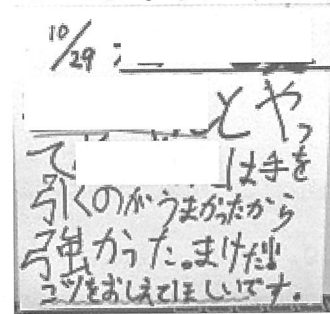 10/29:
とやっ
て は手を
引くのがうまかったから
強かった。まけた!!
コツをおしえてほしいです。